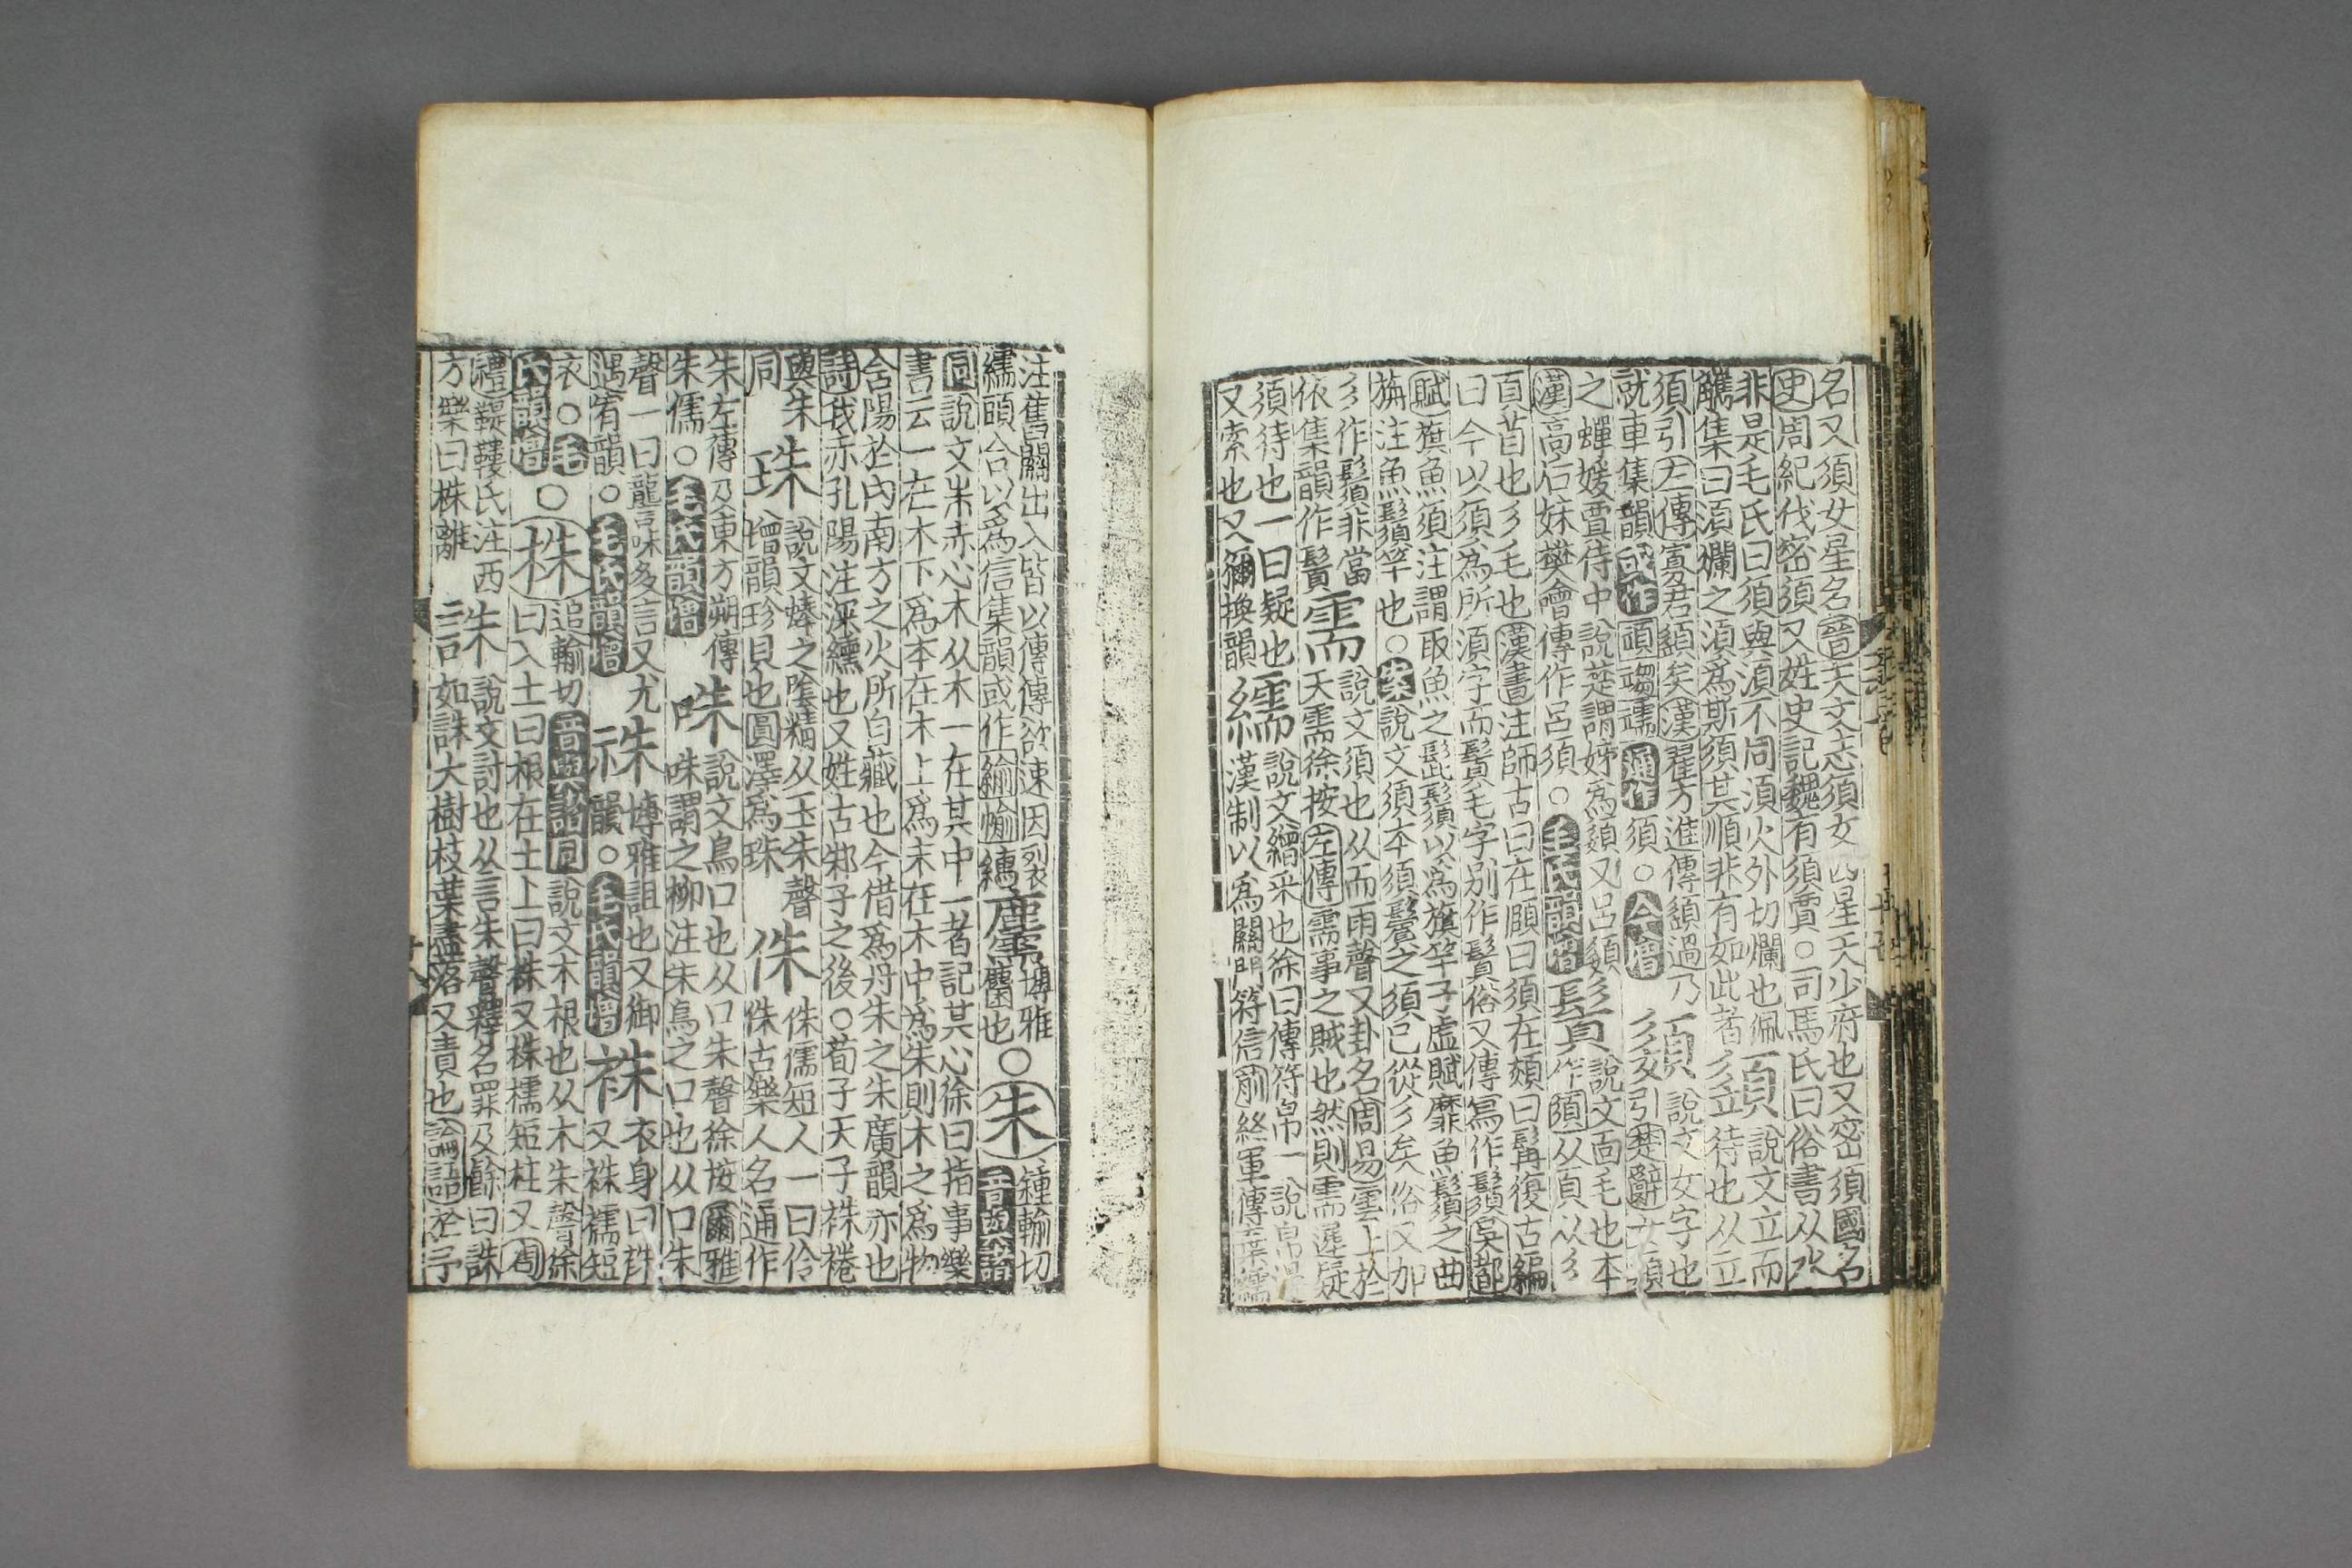 名又須女星名晉天文志須女四星天少府也又密須國名
史周紀伐密須又姓史記魏有須賈○司馬氏曰俗書从水
非是毛氏曰須與湏不同湏火外切爛也佩
觿集曰湏爛之湏爲斯須其順非有如此者
頾說文立而
䇓待也从立
須引左傳寡君須矣漢翟方進傳須過乃
就車集韻或作䪺䇕䇓通作須○今增
嬃說文女字也
引楚辭女嬃
之嬋媛賈侍中說楚謂姊爲嬃又呂嬃
漢高后妹樊噲傳作呂須○毛氏韻增
鬚說文面毛也本
作須从頁从彡
頁首也彡毛也漢書注師古曰在頤曰須在頰曰髥復古編
曰今以須爲所須字而鬚毛字別作鬚俗又傳寫作鬚吳都
賦旗魚須注謂取魚之髭鬚以爲旗竿子虛賦靡魚鬚之曲
旃注魚鬚竿也○案說文須本須鬢之須已從彡矣俗又加
彡作鬚非當
依集韻作鬚
需說文須也从而雨聲又卦名周易雲上於
天需徐按左傳需事之賊也然則需遲疑
須待也一曰疑也
又索也又獮換韻
繻說文繒采也徐曰傳符帛一說帛邊
漢制以爲關門符信前終軍傳棄繻
注舊關出入皆以傳傳欲速因裂
繻頭合以爲信集韻或作緰㡏繻
䴦博雅
麕也
○朱鍾輸切
音與諸
同說文朱赤心木从木一在其中一者記其心徐曰指事欒
書云一在木下爲本在木上爲末在木中爲朱則木之爲物
含陽於內南方之火所自藏也今借爲丹朱之朱廣韻亦也
詩我朱孔陽注深纁也又姓古邾子之後○荀子天子袾裷
與朱
同
珠說文蜯之陰精从玉朱聲
增韻珍貝也圓澤爲珠
侏侏儒短人一曰伶
侏古樂人名通作
朱左傳及東方朔傳
朱儒○毛氏韻增
咮說文鳥口也从口朱聲徐按爾雅
咮謂之柳注朱鳥之口也从口朱
聲一曰𧮙咮多言又尤
遇宥韻○毛氏韻增
祩博雅詛也又御
韻○毛氏韻增
袾衣身曰袾
又袾襦短
衣○毛
氏韻增
○株追輸切音與諸同說文木根也从木朱聲徐
曰入土曰根在土上曰株又株檽短柱又周
禮鞮鞻氏注西
方樂曰株離
誅說文討也从言朱聲釋名罪及餘曰誅
如誅大樹枝葉盡落又責也論語於予